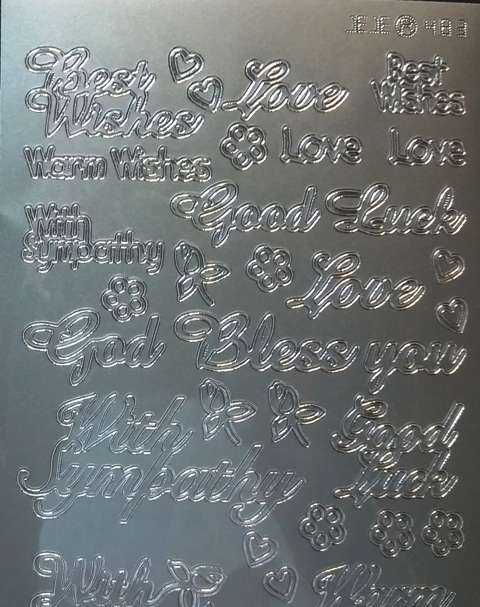 JEJE 483
Best Wishes
Love
Best Wishes
Warm Wishes
Love
Love
Good Luck
With Sympathy
Love
God Bless you
With Sympathy
Good Luck
With
Warm